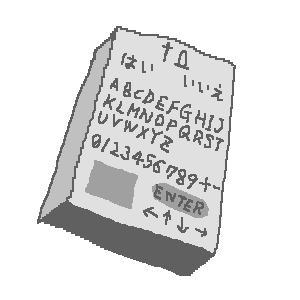 †Ω
はい いいえ
ABCDEFGHIJ
KLMNOPQRST
UVWXYZ
0123456789+-
ENTER
←↑↓→